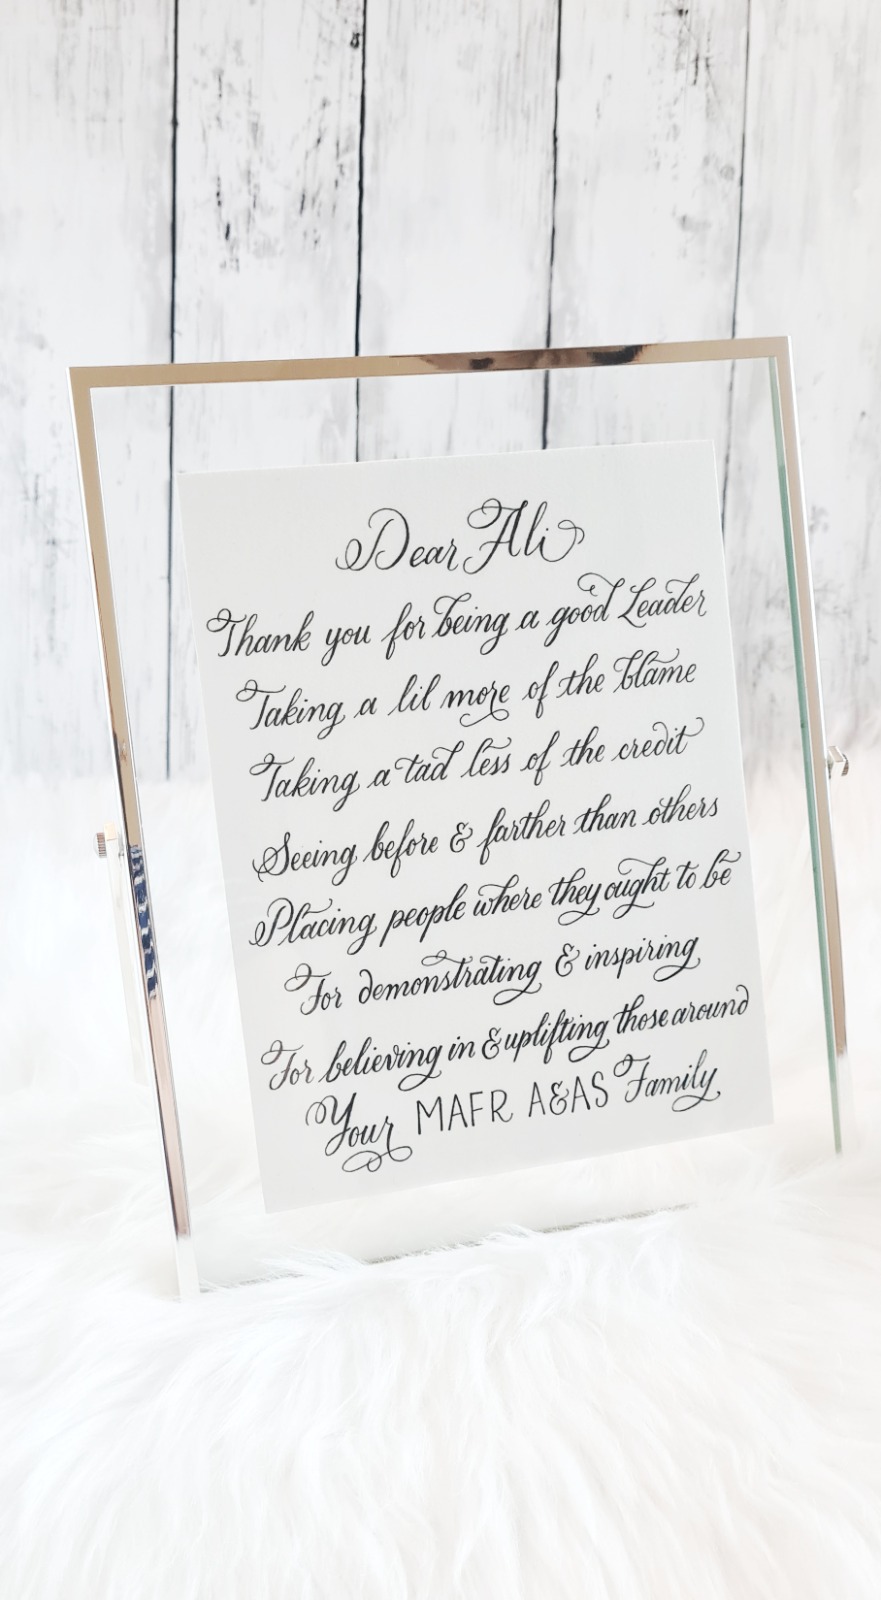 Dear Ali
Thank you for being a good Leader
Taking a lil more of the blame
Taking a tad less of the credit
Seeing before & farther than others
Placing people where they ought to be
For demonstrating & inspiring
For believing in & uplifting those around
Your MAFR A&AS Family